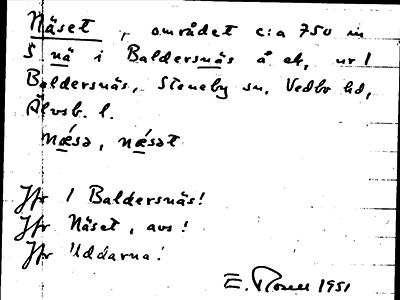 Näset, området c:a 750 m
S nä i Baldersnäs å ek, nr 1
Baldersnäs, Steneby sn, Vedbo hd,
Älvsb. l.
næ´sə, næ´sət
Jfr 1 Baldersnäs!
Jfr Näset, avs!
Jfr Uddarna!
E. 1951